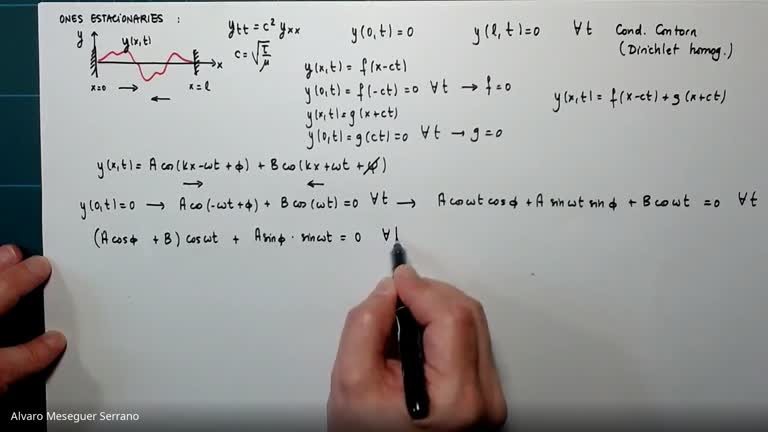 ONES ESTACIONARIES :
y y(x,t) x
x=0 x=l
y_tt = c² y_xx y(0,t)=0 y(l,t)=0 ∀t Cond. Contorn
c=√(T/μ) (Dirichlet homog.)
y(x,t)=f(x-ct)
y(0,t)=f(-ct)=0 ∀t → f=0
y(x,t)=g(x+ct)
y(0,t)=g(ct)=0 ∀t → g=0
y(x,t)=f(x-ct)+g(x+ct)
y(x,t)= A cos(kx-ωt+φ) + B cos(kx+ωt+φ)
y(0,t)=0 → A cos(-ωt+φ) + B cos(ωt)=0 ∀t → A cosωt cosφ + A sinωt sinφ + B cosωt =0 ∀t
(A cosφ + B) cosωt + A sinφ · sinωt = 0 ∀
Alvaro Meseguer Serrano